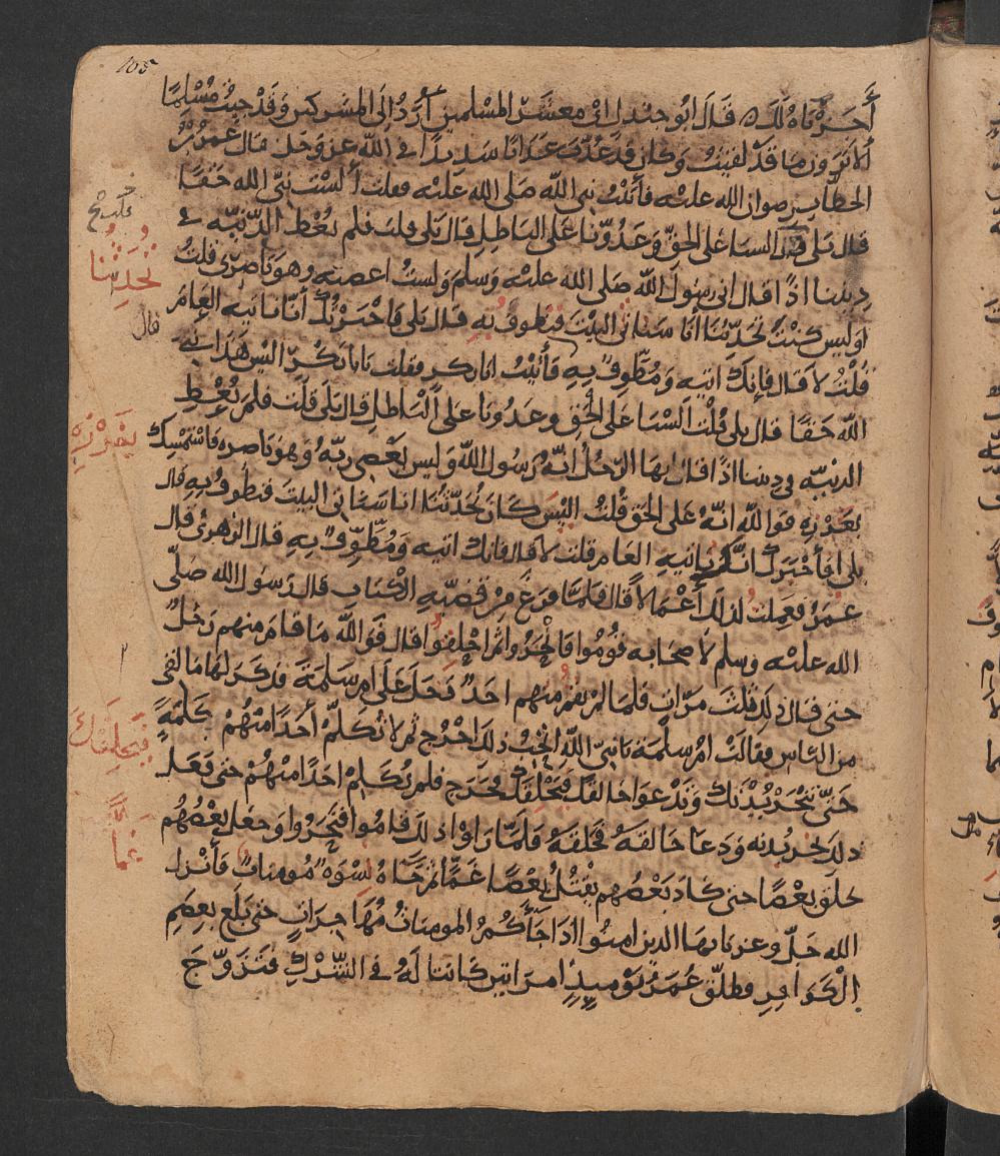 105
أَجَزْنَاهُ لَكَ ۵ قَالَ أَبُو جندل اى معشَرَ المسلمين أُرَدُّ إِلَى المشركين وَقَدْ جيتُ مُسْلِمًا
أَلَا تَرَون ما قَدْ لقيتُ وَكان قد عُذِّبَ عَذابًا شديدًا في الله عز وجل قال عُمَرُ بْنُ
الخطّاب رضوان الله عليْه فَأَتَيْتُ نبي الله صَلى الله عَليْه فقلت أَلَسْت نبيَّ الله حَقًّا
قال بَلى قلت السنا عَلى الحَقّ وَعَدُوّنا عَلَى الباطِلِ قال بَلى قلت فلم نُعْطِ الدَّنيّه في
دِيننا اذًا قال انى رسول الله صَلى الله عليْه وَسلم وَلستُ اعصيه وهوَ ناصِرى قلتُ
اوليس كنْتَ تُحَدِّثُنَا أَنَّا سَنأتى البيْتَ فنطوفُ بِهِ قال بَلى فَاخْبَرْتُكَ أَنَّا نَاتيه العَامَ
قُلْتُ لا قال فَإِنَّكَ اتيه وَمُطَّوِفٌ بِهِ فَأَتَيْتُ ابا بكر فقلت يَابَا بَكْرٍ اليس هَذَا نَبيّ
الله حَقًّا قال بلى قُلْتُ أَلَسْنَا عَلى الحَقِ وعَدُونا على الْبَاطل قال بَلى قلت فلمَ نُعْطِ
الدنيّه في ديننا اذًا قال ايها الرَّجُل انَّهُ رَسُول الله وَليس يَعْصى رَبّهُ وَهوَ ناصره فَاسْتَمْسِكْ
بغَرْزِهِ فوَالله انّهُ عَلى الحَق قُلتُ اليْسَ كَانَ يُحَدّثُنَا انا سَنَاتى البيتَ فنطُوفُ بِهِ قال
بلى افأَخْبَرَكَ انَّكَ تَاتِيهِ العَام قلت لا قال فَإِنك اتيه وَمُطَّوِّفٌ بِهِ قال الزهرىُّ قال
عمَرُ فَعَمِلتُ لذلك أَعْمَالًا قال فَلمّا فرَغَ مِنْ قَضيّهِ الْكتابِ قال رَسُول الله صَلى
الله عليْه وسلم لأصحابه قُومُوا فَانْحَرُوا ثمَّ احْلِقوا قال فَوَالله مَا قامَ منهم رَجُلٌ
حتى قال ذَلِكَ ثَلثَ مَرّاتٍ فلمّا لمْ يقمْ منهم احَدٌ دَخلَ عَلَى ام سَلمَة فَذَكَرَ لها مَا لقى
من النّاس فقالَتْ امُّ سلمَة يا نبيّ الله اتُحِبُّ ذلِكَ اخْرُج ثم لا تُكَلّمْ أحَدًا منهُمْ كَلِمَةً
حَتّى تَنْحَرَ بُدْنَكَ وَتَدْعوَا حَالقَكَ فَيَحْلقَكَ فخرَجَ فلم يُكَلِمْ احَدًا منهُمْ حتى فَعَلَ
ذلِكَ نحَرَ بُدنه وَدعَا حَالِقَهُ فحَلَقَهُ فَلمّا رَاوْا ذلِكَ قَامُوا فَنحَرُوا وَجعَل بَعْضهُم
يحلق بَعْضًا حتى كادَ بَعْضُهم يقتُلُ بَعْضًا غَمًّا ثمَّ جَاءَهُ نِسْوَةٌ مُومنَاتٌ فَأَنْزل
الله جَلّ وعز يا يها الذين امنُوا اذا جَأَكُمُ المومنَاتُ مُهَاجِرَاتٍ حتى بَلَغ بعِصَمِ
الْكَوَافِرِ فطلّقَ عُمَرُ يَوْميذٍ امرَاتين كَانَتا لهُ في الشّرْكِ فتَزَوَّجَ
تُحَدِثُنا
قال
بغَرْزِهِ
فيَحلِقَكَ
غَمًّا